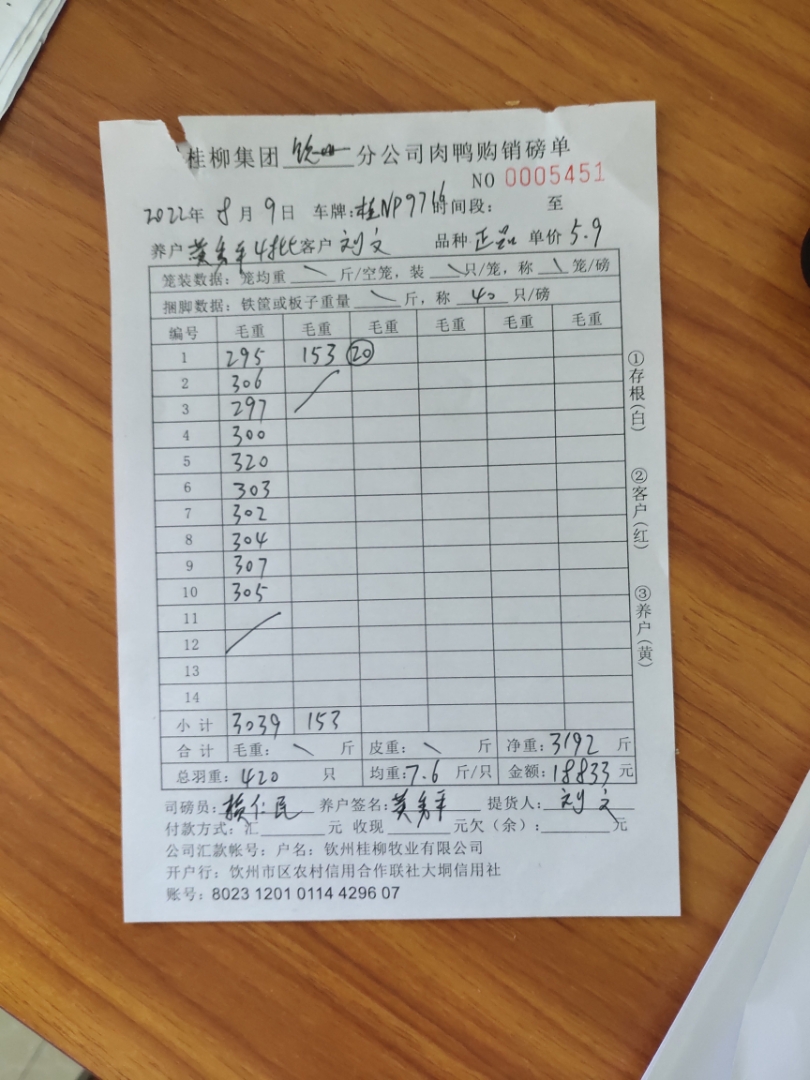 桂柳集团 钦州 分公司肉鸭购销磅单
NO 0005451
2022年 8月 9日 车牌:桂NP9766时间段: 至
养户 黄秀平4批 客户 刘文 品种 正品 单价 5.9
笼装数据: 笼均重 \ 斤/空笼, 装 \ 只/笼, 称 \ 笼/磅
捆脚数据: 铁筐或板子重量 \ 斤, 称 40 只/磅
编号 毛重 毛重 毛重 毛重 毛重 毛重
1 295 153 20
2 306
3 297
4 300
5 320
6 303
7 302
8 304
9 307
10 305
11
12
13
14
小计 3039 153
合计 毛重: \ 斤 皮重: \ 斤 净重: 3192 斤
总羽重: 420 只 均重: 7.6 斤/只 金额: 18833 元
司磅员: 仁民 养户签名: 黄秀平 提货人: 刘文
付款方式: 汇 元 收现 元欠(余): 元
公司汇款帐号: 户名: 钦州桂柳牧业有限公司
开户行: 饮州市区农村信用合作联社大垌信用社
账号: 8023 1201 0114 4296 07
①存根(白)
②客户(红)
③养户(黄)